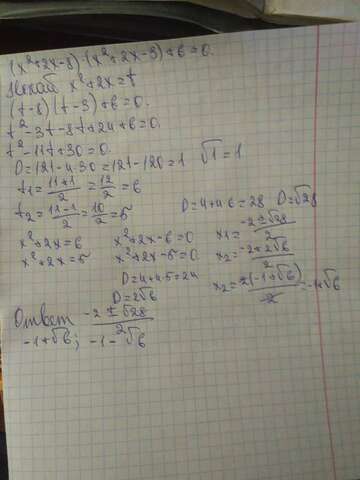 (x²+2x-8)(x²+2x-3)+6=0.
Нехай x²+2x=t
(t-8)(t-3)+6=0.
t²-3t-8t+24+6=0.
t²-11t+30=0.
D=121-4·30=121-120=1 √1=1.
t₁=(11+1)/2=12/2=6
t₂=(11-1)/2=10/2=5
x²+2x=6 x²+2x-6=0
x²+2x=5 x²+2x-5=0
D=4+4·6=28 D=√28
x₁=(-2±√28)/2
D=4+4·5=24
D=2√6
x₂=(-2+2√6)/2
x₂=2(-1+√6)/2=-1+√6
Ответ (-2±√28)/2
-1+√6; -1-√6